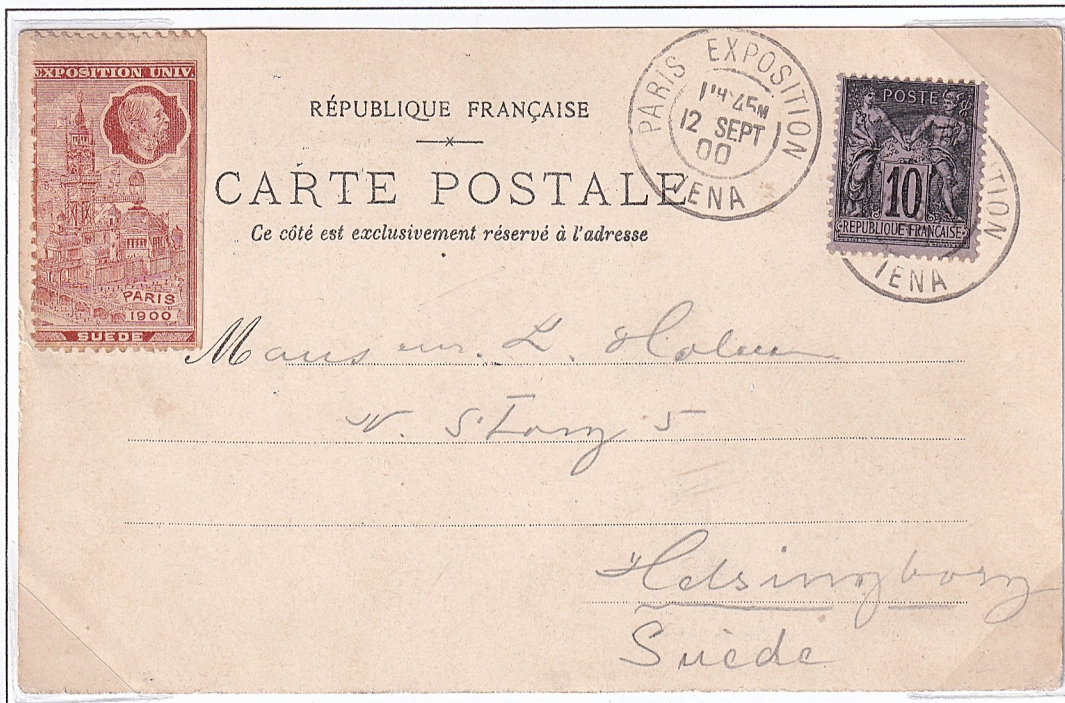 EXPOSITION UNIV.
PARIS
1900
SUÈDE
RÉPUBLIQUE FRANÇAISE
CARTE POSTALE
Ce côté est exclusivement réservé à l'adresse
PARIS EXPOSITION
12 SEPT
00
IENA
POSTE
10
RÉPUBLIQUE FRANÇAISE
TION
IENA
M
N. Storg 5
Helsingborg
Suède